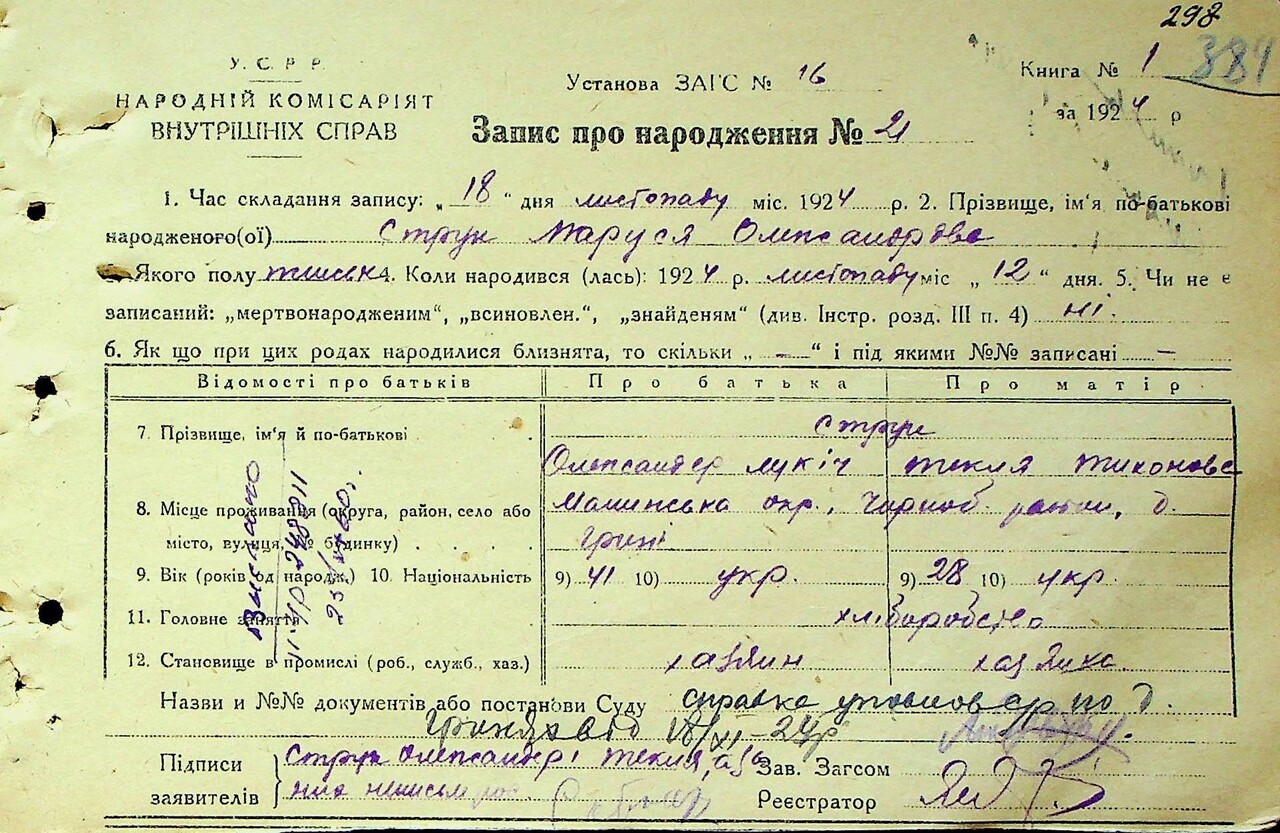 298
У.С.Р.Р.
НАРОДНІЙ КОМІСАРІЯТ
ВНУТРІШНІХ СПРАВ
Установа ЗАГС № 16
Книга № 1 384
за 1924 р
Запис про народження № 21
1. Час складання запису: „18“ дня листопаду міс. 1924 р. 2. Прізвище, ім'я по-батькові
народженого(ої) Струк Маруся Олександровa
Якого полу жіноч 4. Коли народився (лась): 1924 р. листопаду міс „12“ дня. 5. Чи не є
записаний: „мертвонародженим“, „всиновлен.“, „знайденям“ (див. Інстр. розд. III п. 4) ні.
6. Як що при цих родах народилися близнята, то скільки „ — “ і під якими №№ записані —
Відомості про батьків Про батька Про матір
7. Прізвище, ім'я й по-батькові Струк
Олександер Лукіч Текля Тихоновa
8. Місце проживання (округа, район, село або Малинська окр., Чорноб. район, д.
місто, вулиця, № будинку) Грині
9. Вік (років од народж.) 10. Національність 9) 41 10) укр. 9) 28 10) укр.
11. Головне заняття хліборобство
12. Становище в промислі (роб., служб., хаз.) хазяин хазяйка
Вислано
Назви и №№ документів або постанови Суду справка уповнов с/р по д.
18/XI-24р
Підписи заявителів Струк Олександер і Текля,
Зав. Загсом
Реєстратор